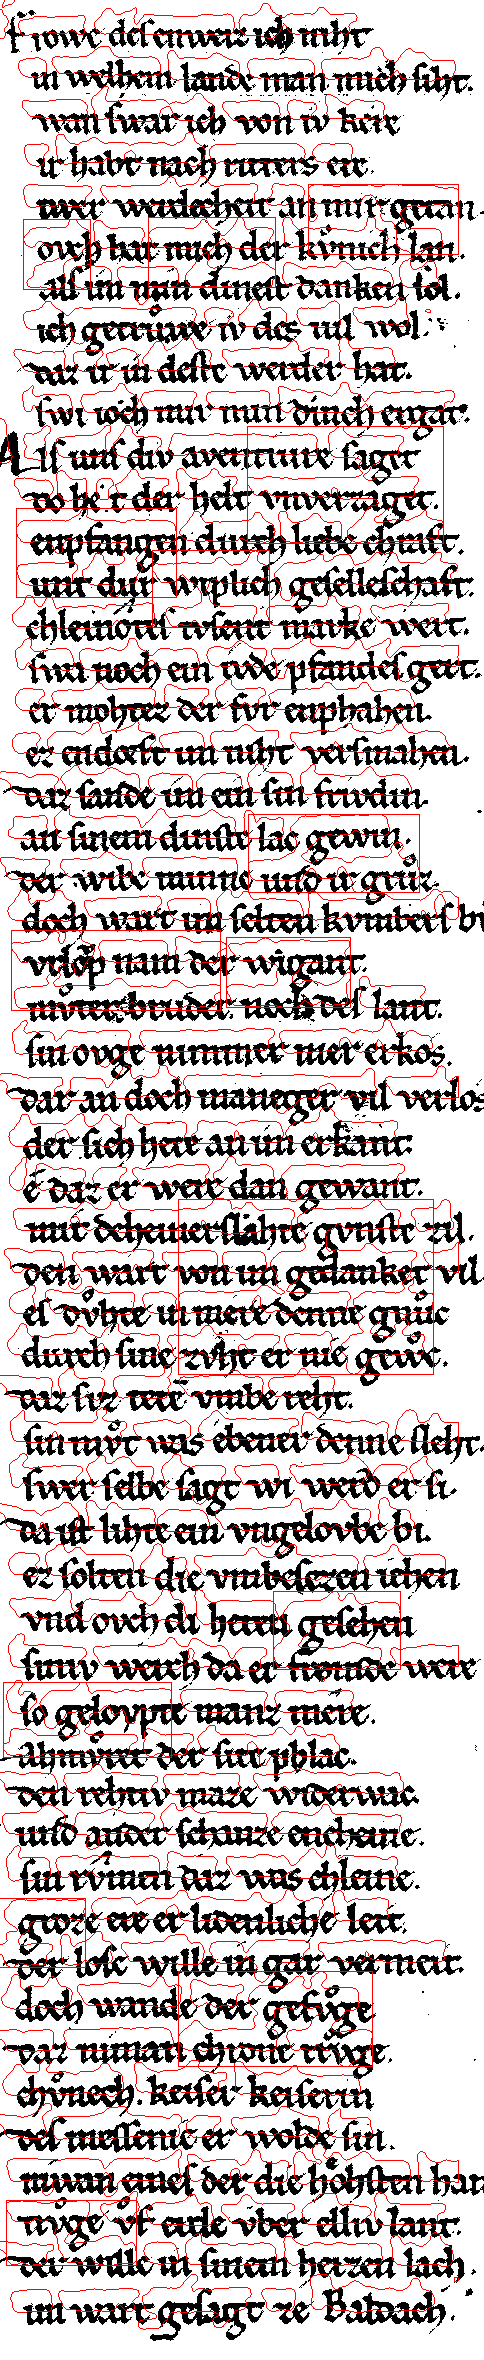 frowe des enweiz ich niht
in welhem lande man mich siht.
wan swar ich von iv kere
ir habt nach ritters ere.
iwer werdecheit an mir getan.
ovch hat mich der kvnich lan.
als im min dinest danken sol.
ich getruwe iv des vil wol.
daz ir in deste werder hat.
swi ioch mir min dinch ergat.
Als uns div aventiure saget
do het der helt vnverzaget.
enpfangen durch liebe chraft.
unt durh wiplich geselleschaft.
chleinotes tvsent marke wert.
swa noch ein ivde pfandes gert.
er mohtez der fvr enphahen.
ez endorft im niht versmahen.
daz sande im ein sin friwdin.
an sinem dinste lac gewin.
der wibe minne und ir gruz.
doch wart im selten kvmbers bu
vrlop nam der wigant.
mvter bruder noch des lant.
sin ovge nimmer mer erkos.
dar an doch maneger vil verlos
der sich here an im erkant.
e daz er were dan gewant.
mit deheiner slahte gvnste zil.
den wart von im gedanket vil
es dvhte in mere denne gnuc
durch sine zvht er nie gewc.
daz siz teten vmbe reht.
sin mvt was ebener denne sleht.
swer selbe sagt wi werd er si.
da ist lihte ein vngelovbe bi.
ez solten die vmbesezen iehen
vnd ovch di heten gesehen
siniv werch da er fremde were
so gelovpte manz mere.
Gahmvret der site phlac.
den rehtiv maze widerwac.
und ander schanze encheine.
sin rvmen daz was chleine.
groze ere er lidenliche leit.
der lose wille in gar vermeit.
doch wande der gefvge
daz niman chrone trvge.
chvnech. keiser keiserin
des messenie er wolde sin.
niwan eines der die hohsten han
trvge vf erde vber elliv lant.
der wille in sinem herzen lach.
im wart gesagt ze Baldach.